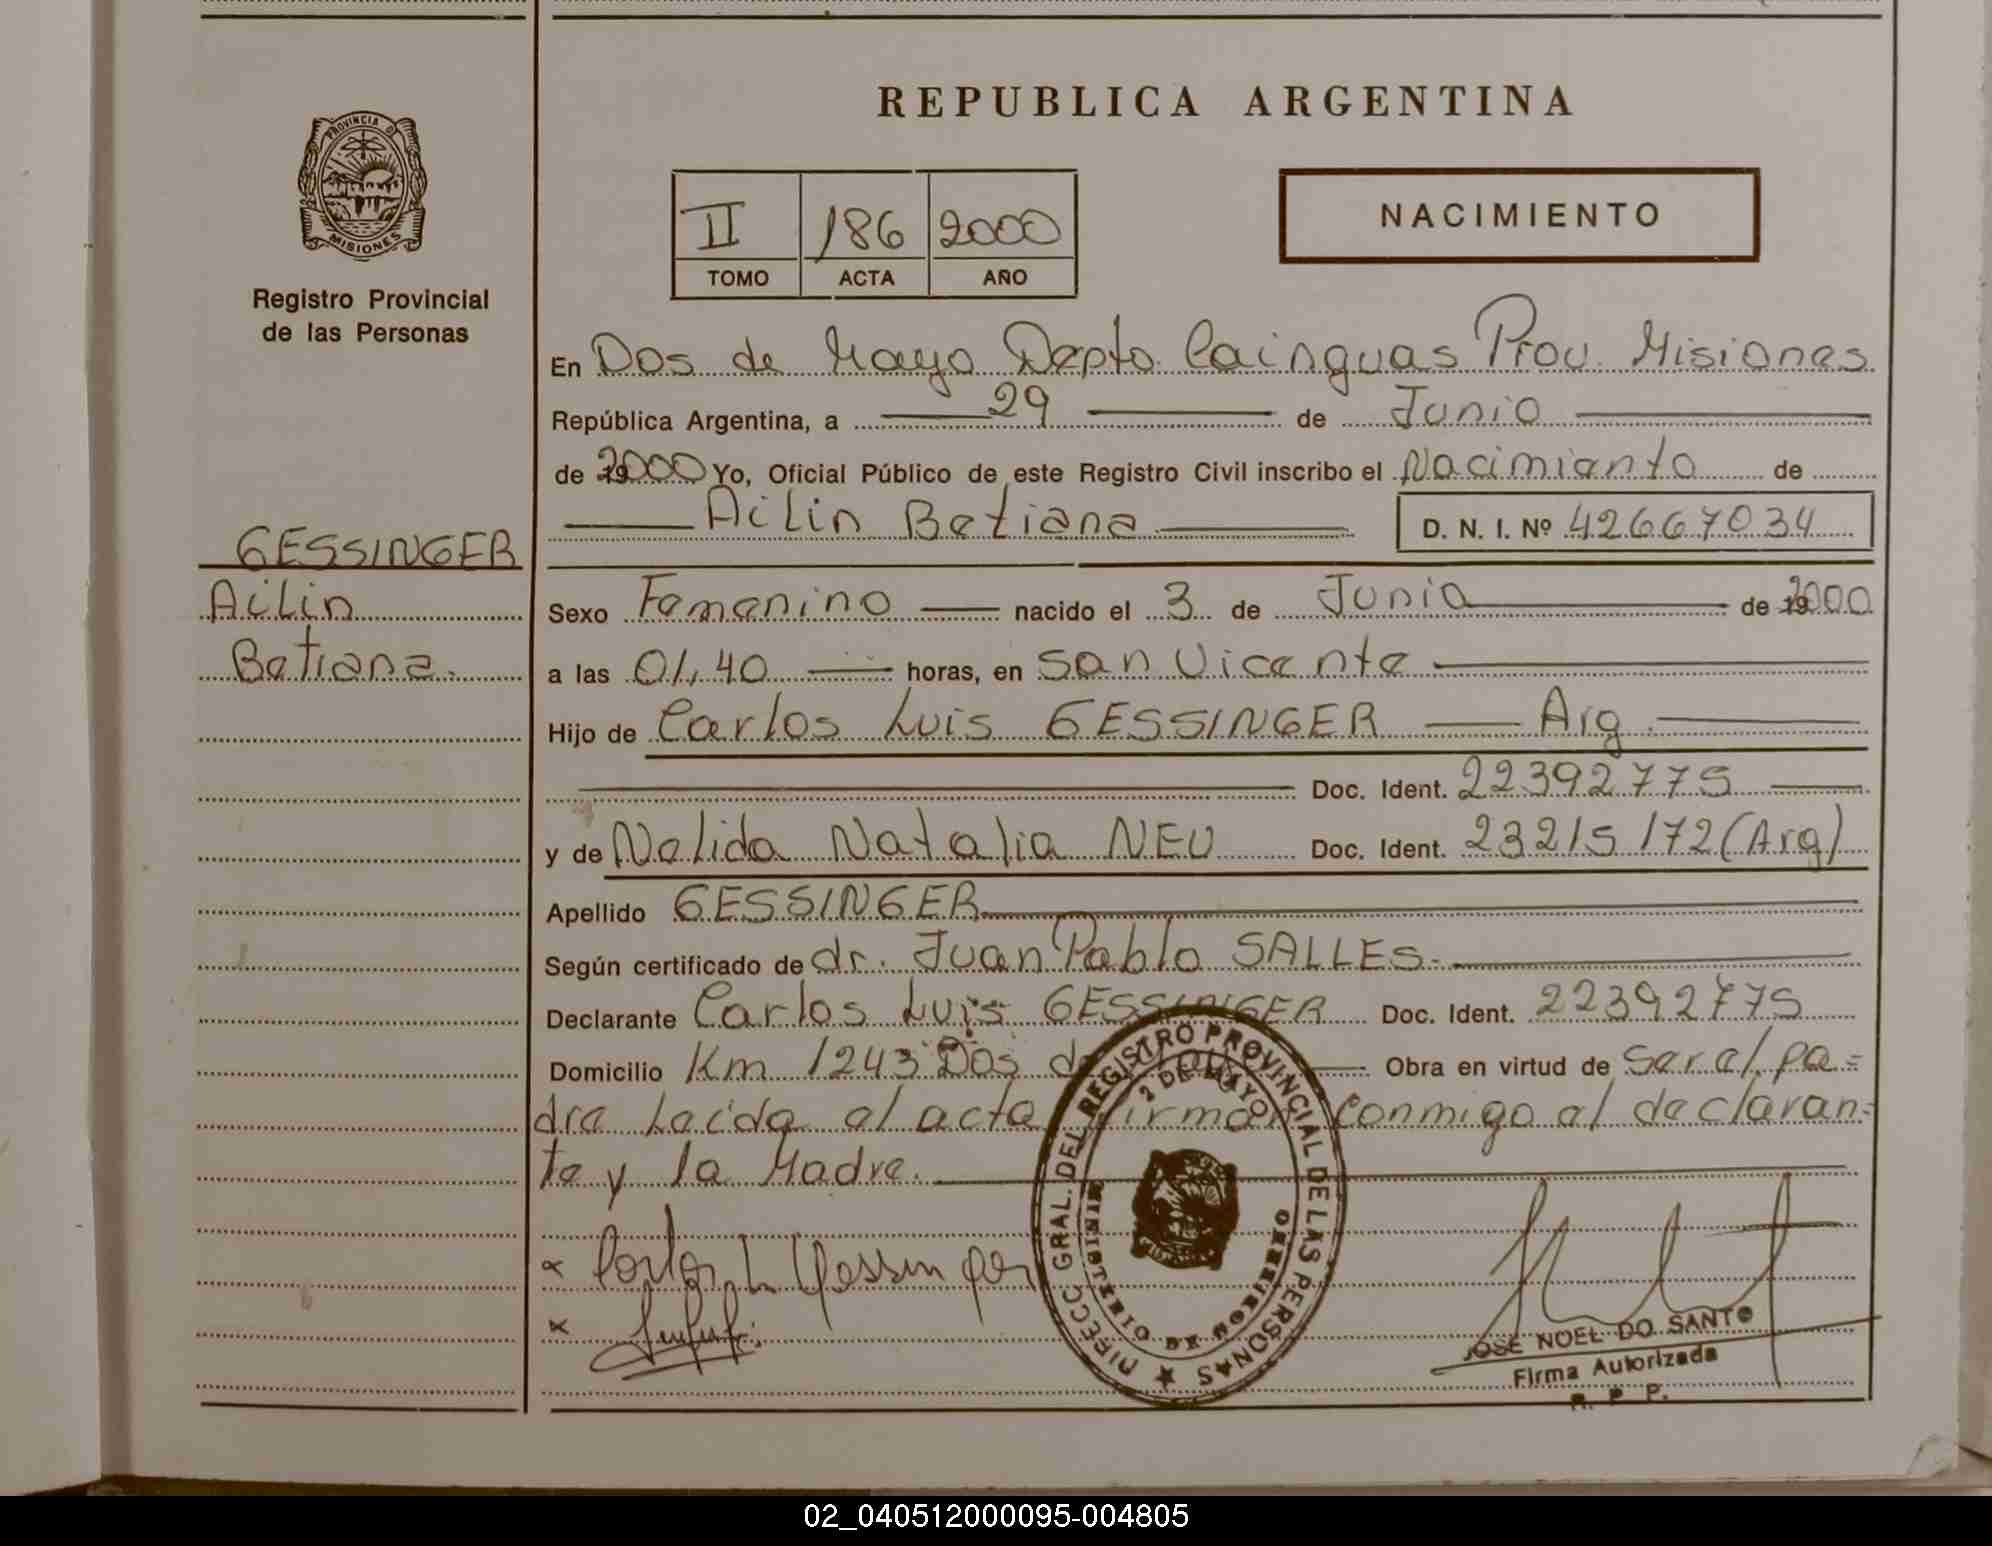 REPUBLICA ARGENTINA
PROVINCIA DE
MISIONES
Registro Provincial
de las Personas
II 186 2000
TOMO ACTA AÑO
NACIMIENTO
En Dos de Mayo Depto. Cainguas Prov. Misiones
República Argentina, a 29 de Junio
de 2000 Yo, Oficial Público de este Registro Civil inscribo el Nacimiento de
Ailin Betiana D. N. I. Nº 42667034
GESSINGER
Ailin
Betiana.
Sexo Femenino nacido el 3 de Junio de 2000
a las 01,40 horas, en San Vicente
Hijo de Carlos Luis GESSINGER Arg.
Doc. Ident. 22392775
y de Nelida Natalia NEU Doc. Ident. 23215172 (Arg)
Apellido GESSINGER
Según certificado de dr. Juan Pablo SALLES.
Declarante Carlos Luis GESSINGER Doc. Ident. 22392775
Domicilio Km 1243 Dos de Mayo Obra en virtud de ser el pa=
dre Leida el acta firman conmigo el declaran=
te y la Madre.
DIRECC. GRAL. DEL REGISTRO PROVINCIAL DE LAS PERSONAS
2 DE MAYO
MINISTERIO DE GOBIERNO
x Carlos L Gessinger
x
JOSE NOEL DO SANTO
Firma Autorizada
R. P. P.
02_040512000095-004805